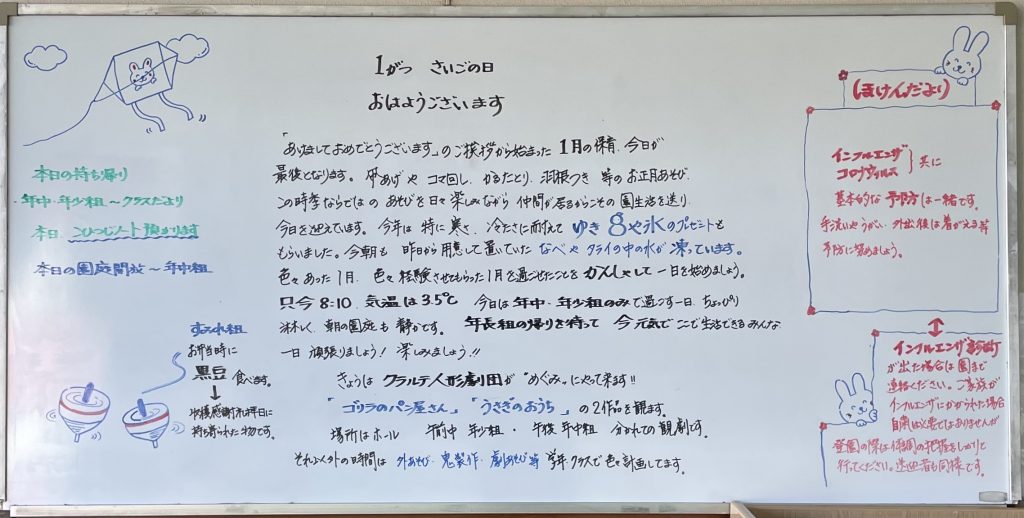 1がつ さいごの日
おはようございます
「あけましておめでとうございます」のご挨拶から始まった1月の保育、今日が
最後となります。凧あげやコマ回し、かるたとり、羽根つき等のお正月あそび、
この時季ならではのあそびを日々楽しみながら仲間が居るからこその園生活を送り、
今日を迎えています。今年は特に寒さ、冷たさに耐えてゆき
や氷のプレゼントも
もらいました。今朝も昨日から用意して置いていたなべやタライの中の水が凍っています。
色々あった1月、色々経験させてもらった1月を過ごせたことをかんしゃして一日を始めましょう。
只今8:10 気温は3.5℃ 今日は年中・年少組のみで過ごす一日、ちょっぴり
淋しく、朝の園庭も静かです。年長組の帰りを待って今元気でここで生活できるみんな
一日頑張りましょう!楽しみましょう!!
きょうはクラルテ人形劇団が"めぐみ"にやって来ます!!
「ゴリラのパン屋さん」「うさぎのおうち」の2作品を観ます。
場所はホール 午前中 年少組・午後 年中組 分かれての観劇です。
それ以外の時間は外あそび・鬼製作・劇あそび等学年・クラスで色々計画してます。
本日の持ち帰り
年中・年少組～クラスだより
本日、こひつじノート預かります
本日の園庭開放～年中組
すみれ組
お弁当時に
黒豆 食べます。
収穫感謝礼拝日に
持ち寄られた物です。
ほけんだより
インフルエンザ
コロナウィルス
共に
基本的な予防は一緒です。
手洗いやうがい、外出後は着がえ等
予防に努めましょう。
インフルエンザ診断
が出た場合は園まで
連絡ください。ご家族が
インフルエンザにかかられた場合
自粛は必要ではありませんが
登園の際は体調の把握をしっかりと
行ってください。送迎者も同様です。